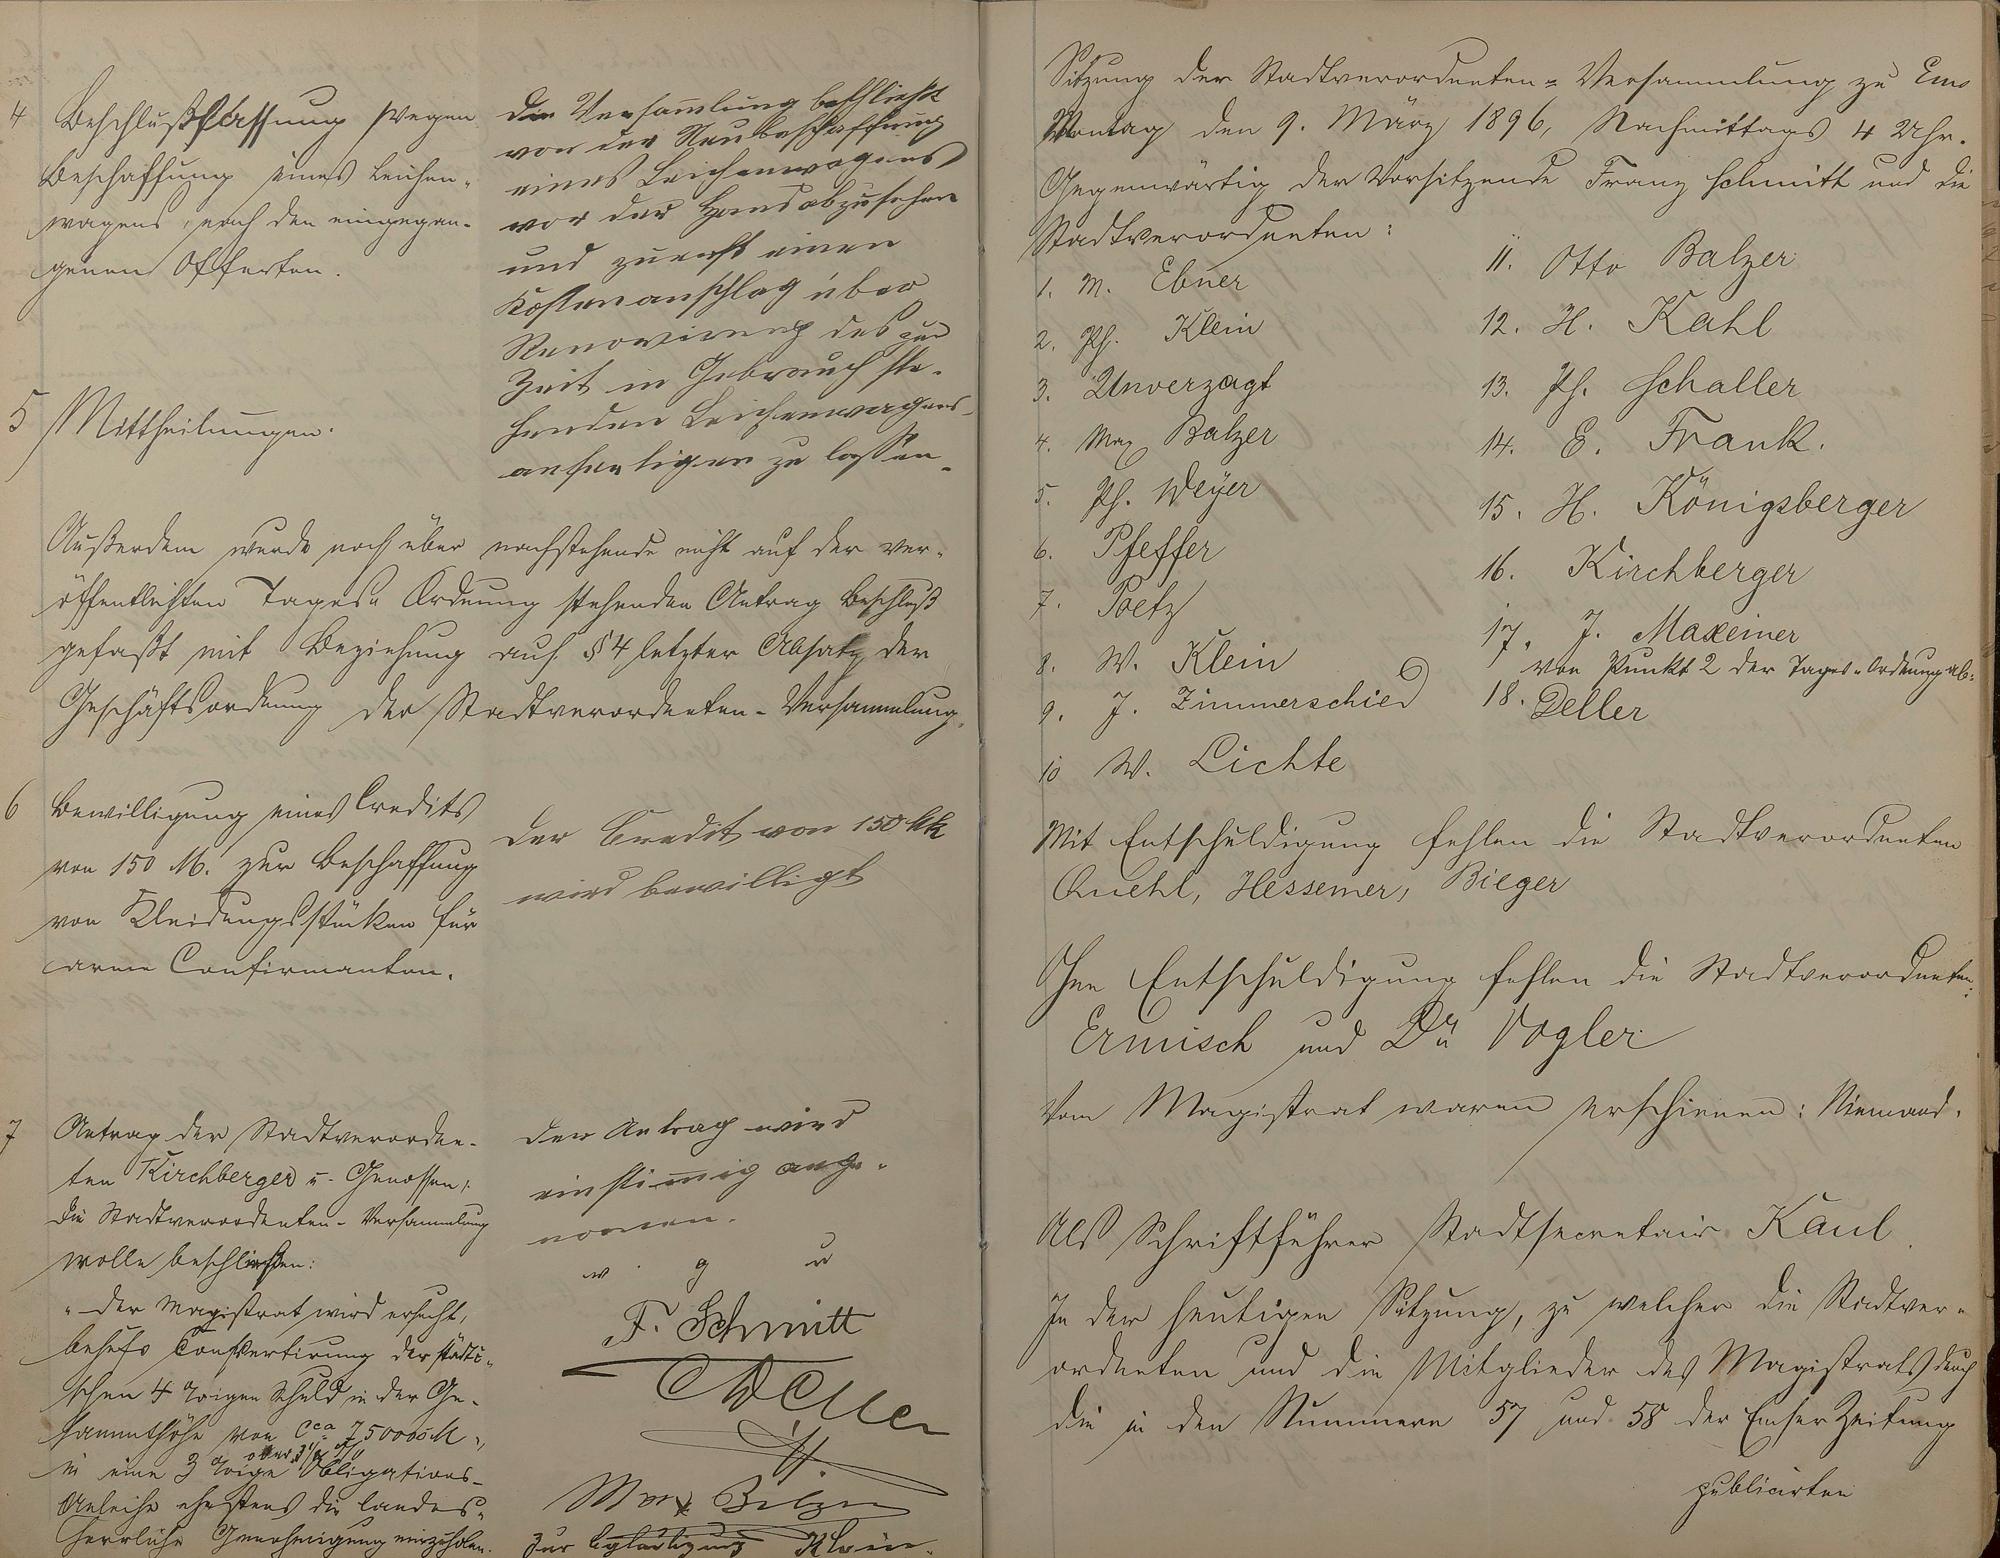 4 Beschlußfassung wegen
Beschaffung eines Leichen-
wagens, nach den eingegan-
genen Offerten.
Die Versammlung beschließt
von der Neubeschaffung
eines Leichenwagens
vor der Hand abzusehen
und zuerst einen
Kostenanschlag über
Renovirung des zur
Zeit in Gebrauch ste-
henden Leichenwagens
anfertigen zu lassen.
5 Mittheilungen.
Außerdem wurde noch über nachstehende nicht auf der ver-
öffentlichten Tages-Ordnung stehenden Antrag Beschluß
gefaßt mit Beziehung auf § 4 letzter Absatz der
Geschäftsordnung der Stadtverordneten-Versammlung.
6 Bewilligung eines Credits
von 150 M. zur Beschaffung
von Kleidungsstücken für
arme Confirmanten.
Der Credit von 150 Mk
wird bewilligt
7 Antrag der Stadtverordne-
ten Kirchberger u. Genossen,
die Stadtverordneten-Versammlung
wolle beschließen:
"Der Magistrat wird ersucht,
behufs Convertirung der städti-
schen 4 %igen Schuld in der Ge-
sammthöhe von Cca 750000 M.,
in eine 3 %ige oder 3 1/2 % Obligations-
Anleihe ehestens die landes-
herrliche Genehmigung einzuholen.
Der Antrag wird
einstimmig ange-
nommen.
v g u
F. Schmitt
Deller
Max Balzer
Zur Beglaubigung Klein.
Sitzung der Stadtverordneten-Versammlung zu Ems
Montag den 9. März 1896, Nachmittags 4 Uhr.
Gegenwärtig der Vorsitzende Franz Schmitt und die
Stadtverordneten:
1. M. Ebner
2. Ph. Klein
3. Unverzagt
4. Max Balzer
5. Ph. Weyer
6. Pfeffer
7. Poetz
8. W. Klein
9. J. Zimmerschied
10 W. Lichte
11. Otto Balzer
12. H. Kahl
13. Ph. Schaller
14. E. Frank.
15. H. Königsberger
16. Kirchberger
17. J. Maxeiner
von Punkt 2 der Tages-Ordnung ab:
18. Deller
Mit Entschuldigung fehlen die Stadtverordneten
Quehl, Hessemer, Bieger
Ohne Entschuldigung fehlen die Stadtverordneten:
Ermisch und Dr. Vogler
Vom Magistrat waren erschienen: Niemand.
Als Schriftführer Stadtsecretair Kaul.
In der heutigen Sitzung, zu welcher die Stadtver-
ordneten und die Mitglieder des Magistrats durch
die in den Nummern 57 und 58 der Emser Zeitung
publicirten